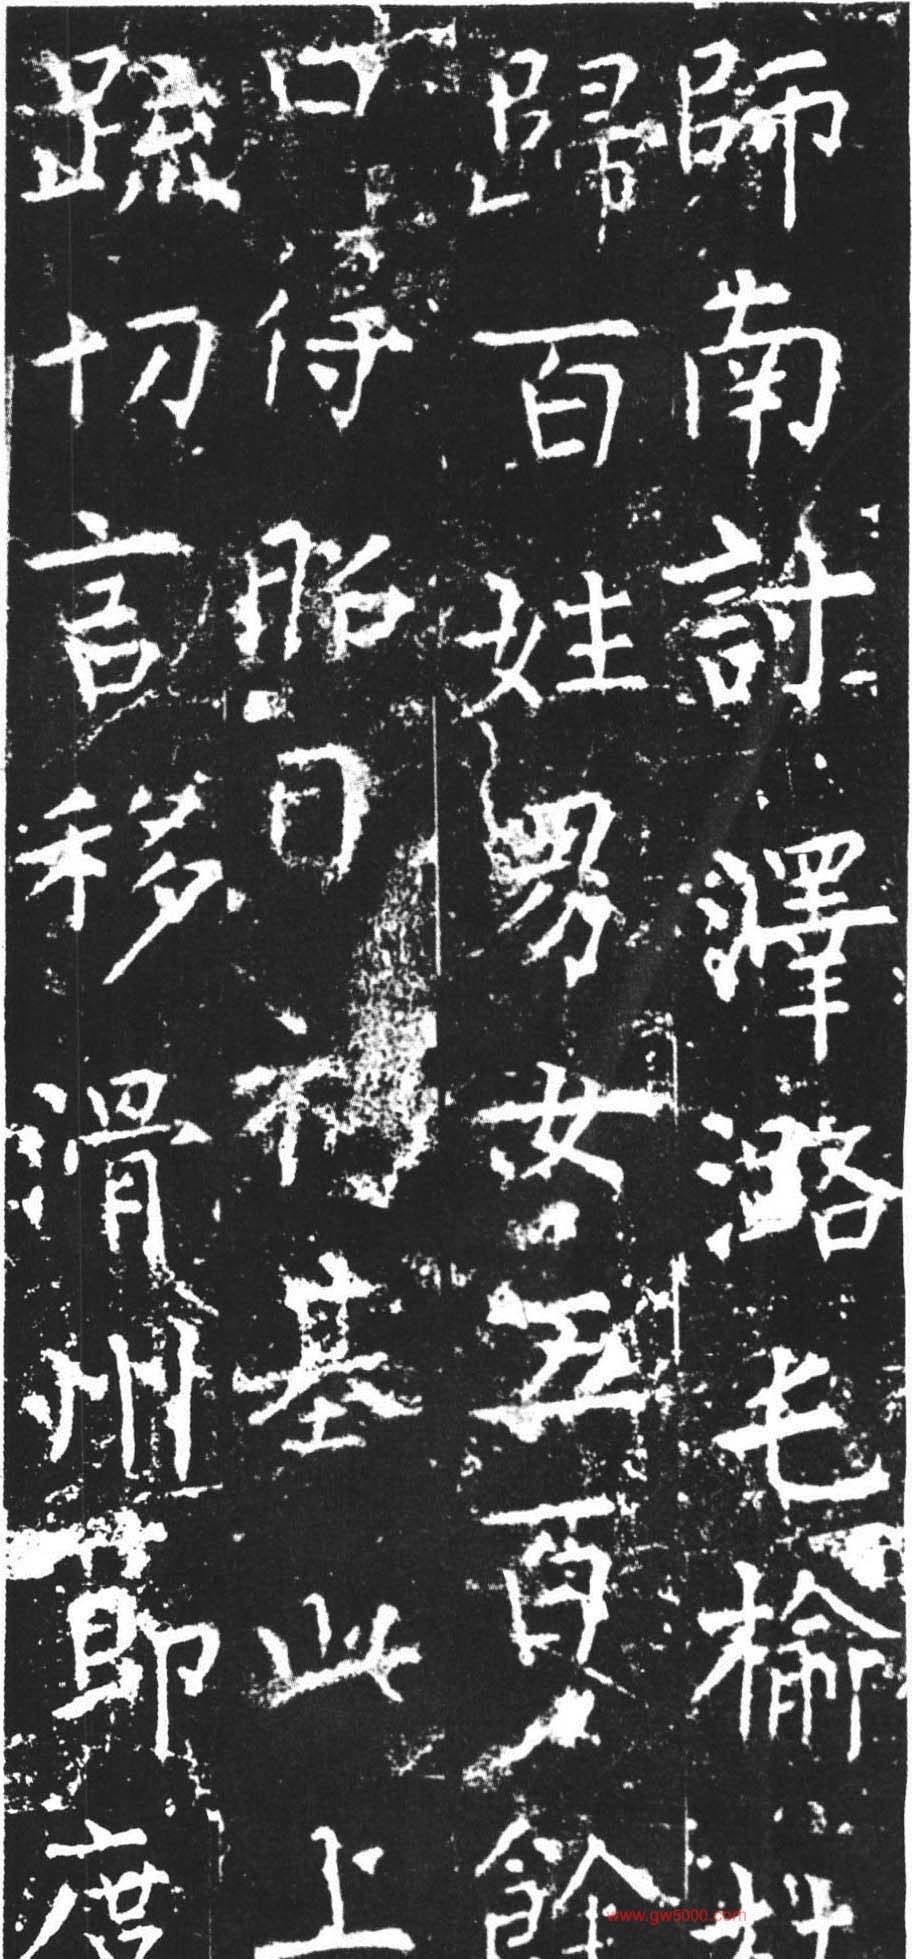 師南討澤潞毛榆
歸百姓男女五百餘
口得 日 基此上
疏切言移滑州節度
www.gw5000.com